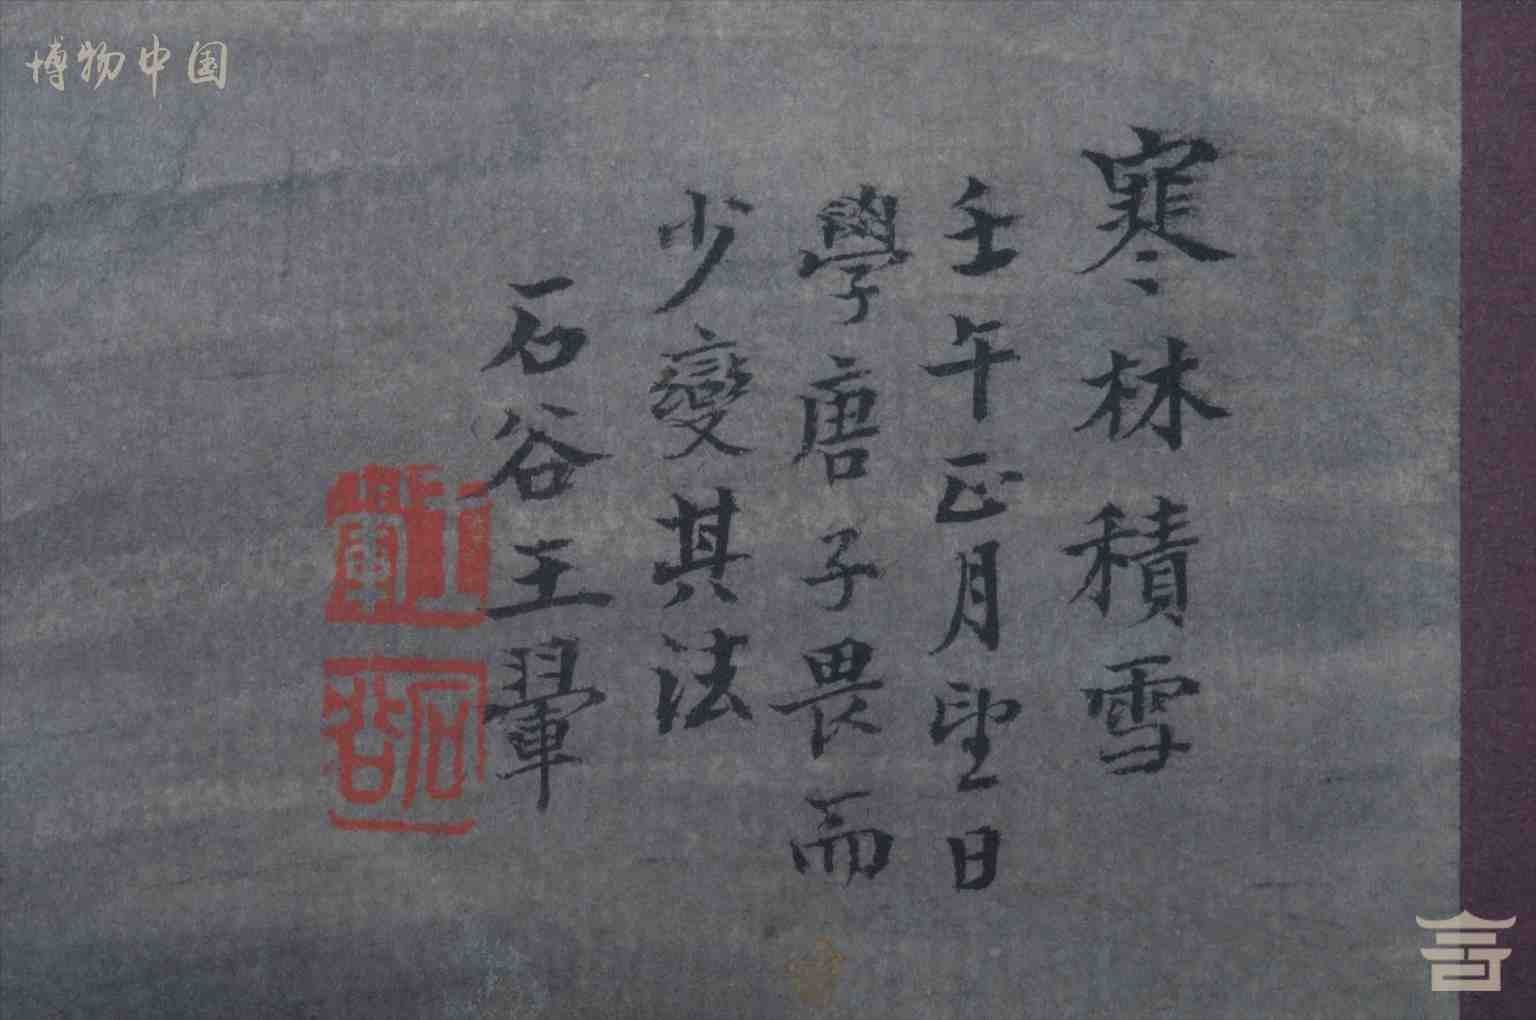 博物中国
寒林積雪
壬午正月望日
學唐子畏而
少變其法
石谷王翬
王翬
石谷